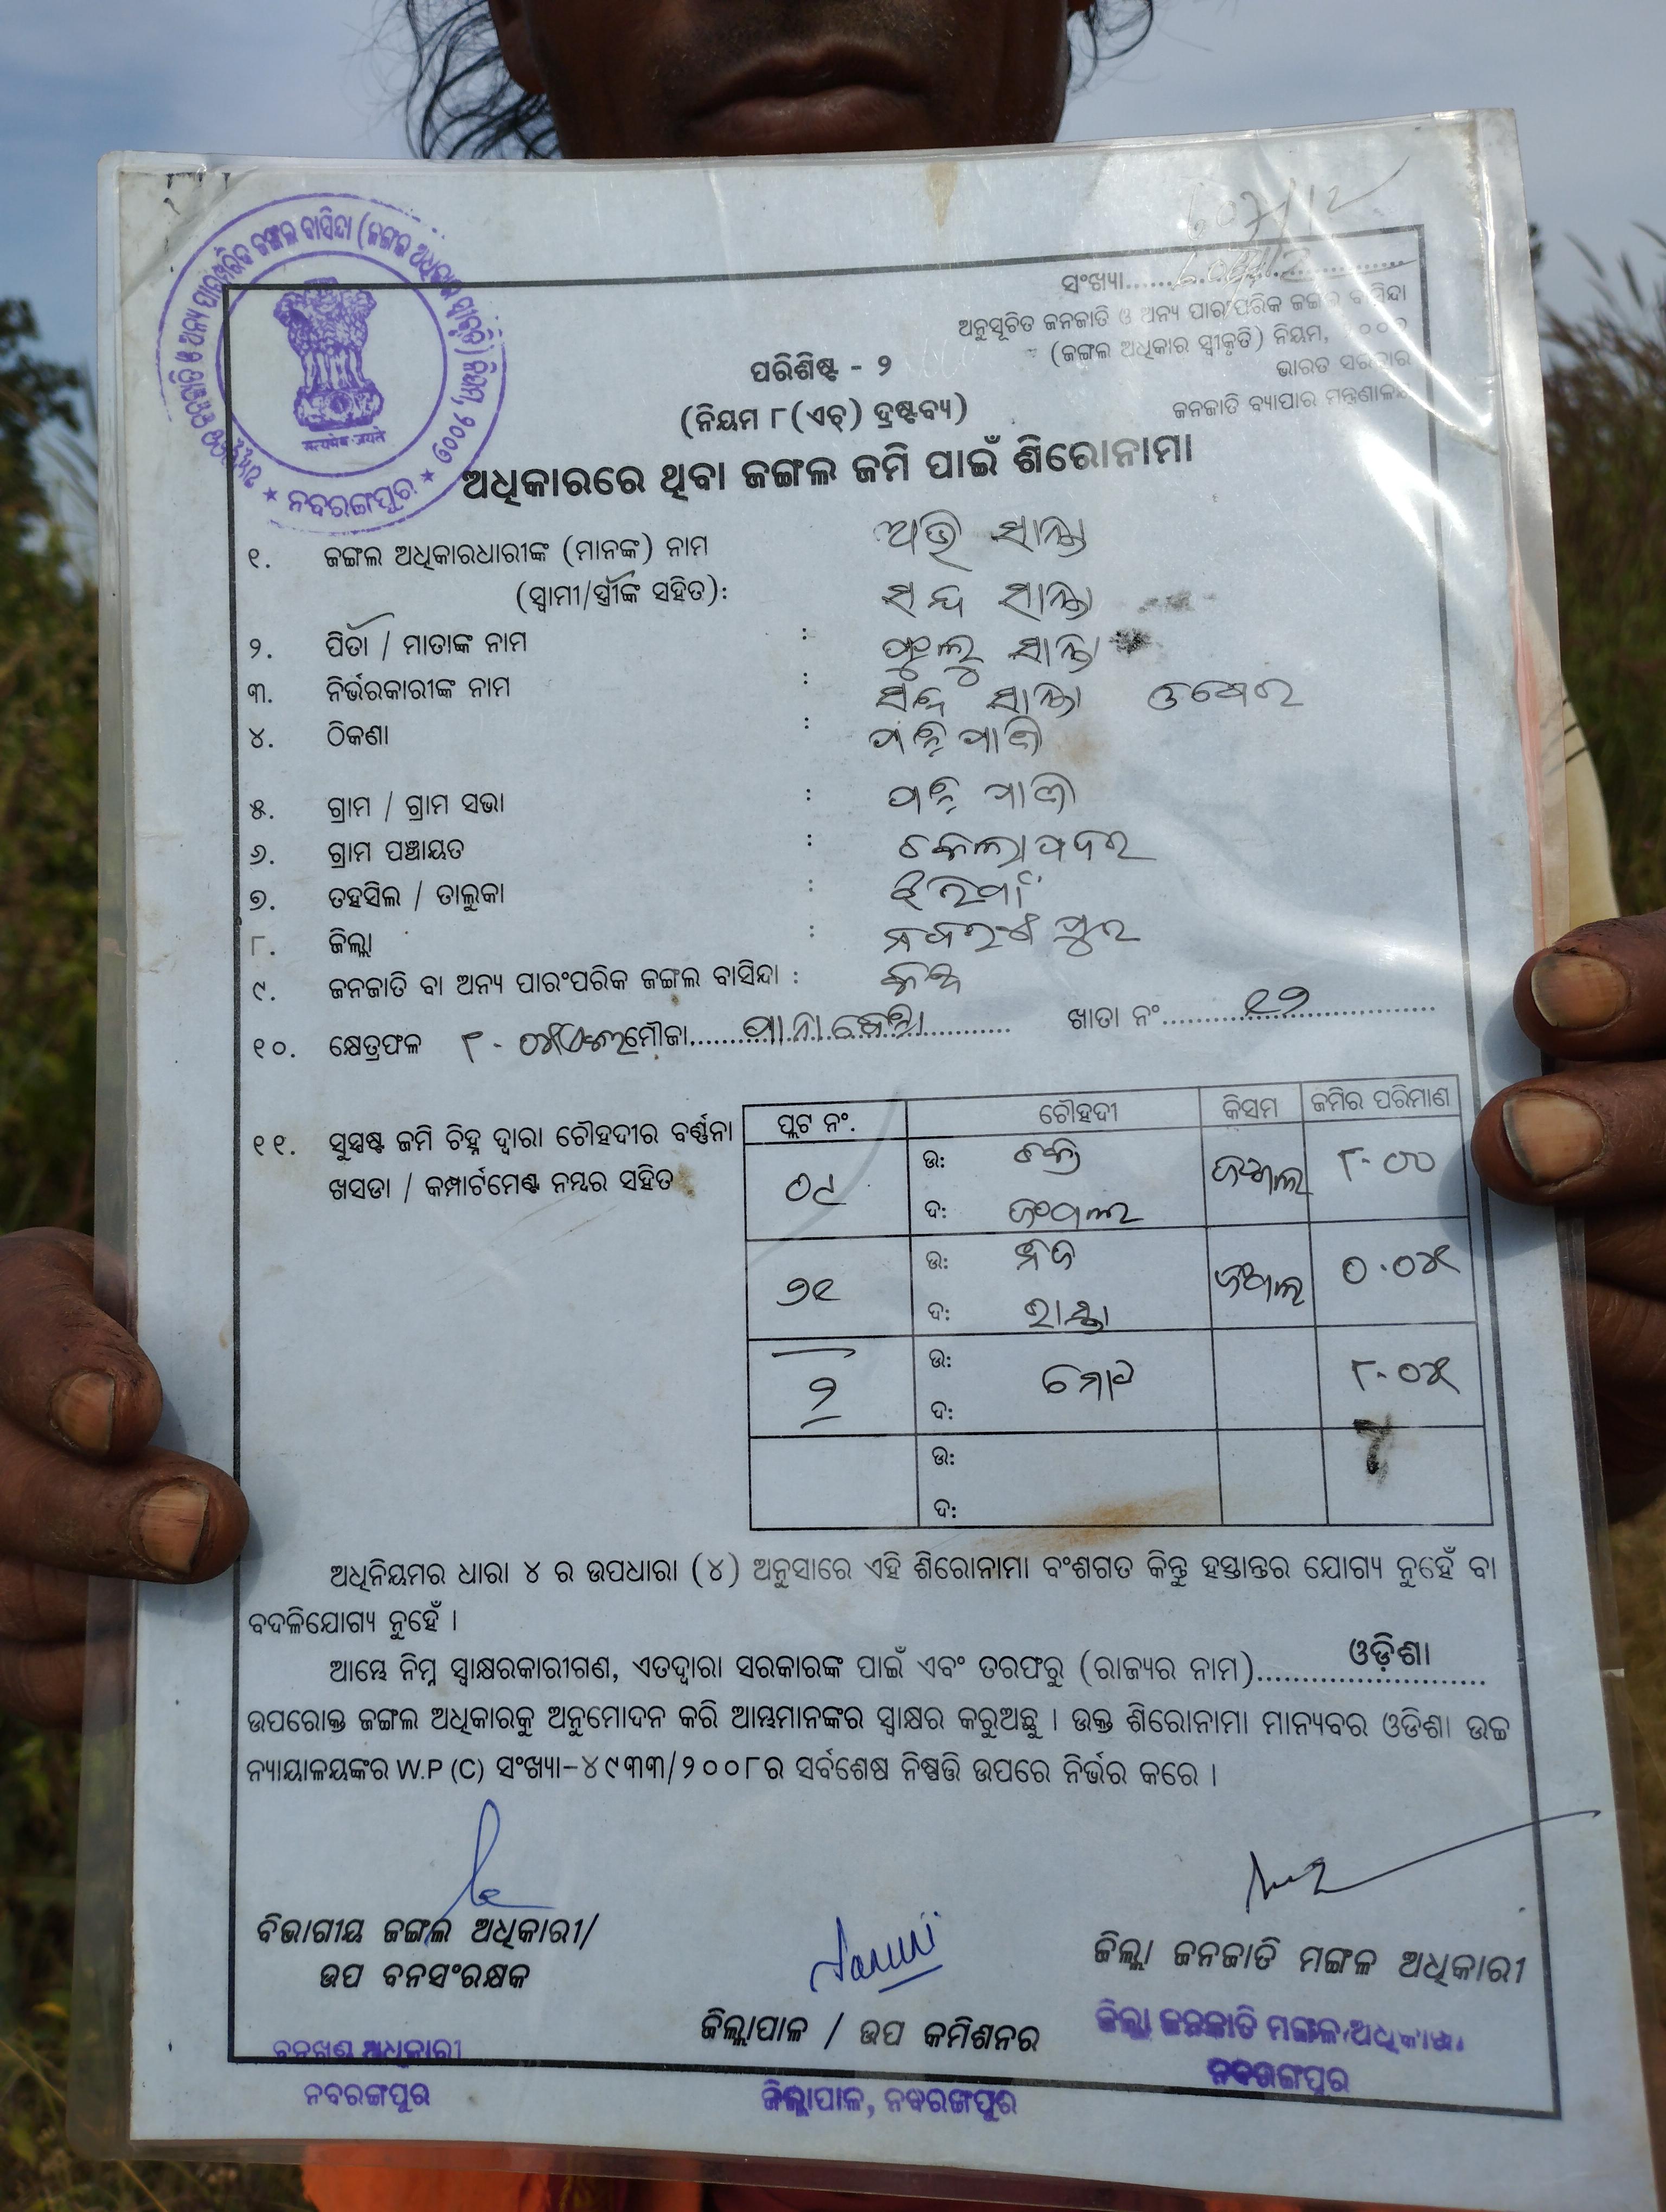 ଅନୁସୂଚିତ ଜନଜାତି ଓ ଅନ୍ୟ ପାରମ୍ପରିକ ଜଙ୍ଗଲ ବାସିନ୍ଦା (ଜଙ୍ଗଲ ଅଧିକାର ସ୍ୱୀକୃତି) ନିୟମ, ୨୦୦୭
ନବରଙ୍ଗପୁର
सत्यमेव जयते
ସଂଖ୍ୟା
ଅନୁସୂଚିତ ଜନଜାତି ଓ ଅନ୍ୟ ପାରଂପରିକ ଜଙ୍ଗଲ ବାସିନ୍ଦା
(ଜଙ୍ଗଲ ଅଧିକାର ସ୍ୱୀକୃତି) ନିୟମ, ୨୦୦୭
ଭାରତ ସରକାର
ଜନଜାତି ବ୍ୟାପାର ମନ୍ତ୍ରଣାଳୟ
ପରିଶିଷ୍ଟ - ୨
(ନିୟମ ୮(ଏଚ୍) ଦ୍ରଷ୍ଟବ୍ୟ)
ଅଧିକାରରେ ଥିବା ଜଙ୍ଗଲ ଜମି ପାଇଁ ଶିରୋନାମା
୧. ଜଙ୍ଗଲ ଅଧିକାରଧାରୀଙ୍କ (ମାନଙ୍କ) ନାମ ଅଭି ସାନ୍ତା
(ସ୍ୱାମୀ/ସ୍ତ୍ରୀଙ୍କ ସହିତ): ସନ୍ଦ ସାନ୍ତା
୨. ପିତା / ମାତାଙ୍କ ନାମ : ସାନ୍ତା
୩. ନିର୍ଭରକାରୀଙ୍କ ନାମ : ସନ୍ଦ ସାନ୍ତା
୪. ଠିକଣା :
୫. ଗ୍ରାମ / ଗ୍ରାମ ସଭା :
୬. ଗ୍ରାମ ପଞ୍ଚାୟତ :
୭. ତହସିଲ / ତାଲୁକା : ଝରିଗାଁ
୮. ଜିଲ୍ଲା : ନବରଂଗପୁର
୯. ଜନଜାତି ବା ଅନ୍ୟ ପାରଂପରିକ ଜଙ୍ଗଲ ବାସିନ୍ଦା : କନ୍ଧ
୧୦. କ୍ଷେତ୍ରଫଳ ୮.୦୪ ମୌଜା ଖାତା ନଂ ୧୨
ପ୍ଲଟ ନଂ. ଚୌହଦୀ କିସମ ଜମିର ପରିମାଣ
୧୧. ସୁସ୍ପଷ୍ଟ ଜମି ଚିହ୍ନ ଦ୍ୱାରା ଚୌହଦୀର ବର୍ଣ୍ଣନା
ଖସଡା / କମ୍ପାର୍ଟମେଣ୍ଟ ନମ୍ବର ସହିତ
ଉ: ଜଙ୍ଗଲ ୮.୦୦
ଦ: ଜଂଗଲ
୭୧ ଉ: ନିଜ ଜଂଗଲ ୦.୦୪
ଦ: ରାସ୍ତା
୨ ଉ: ମୋଟ ୮.୦୪
ଦ:
ଉ:
ଦ:
ଅଧିନିୟମର ଧାରା ୪ ର ଉପଧାରା (୪) ଅନୁସାରେ ଏହି ଶିରୋନାମା ବଂଶଗତ କିନ୍ତୁ ହସ୍ତାନ୍ତର ଯୋଗ୍ୟ ନୁହେଁ ବା
ବଦଳିଯୋଗ୍ୟ ନୁହେଁ ।
ଆମ୍ଭେ ନିମ୍ନ ସ୍ୱାକ୍ଷରକାରୀଗଣ, ଏତଦ୍ୱାରା ସରକାରଙ୍କ ପାଇଁ ଏବଂ ତରଫରୁ (ରାଜ୍ୟର ନାମ) ଓଡ଼ିଶା
ଉପରୋକ୍ତ ଜଙ୍ଗଲ ଅଧିକାରକୁ ଅନୁମୋଦନ କରି ଆମ୍ଭମାନଙ୍କର ସ୍ୱାକ୍ଷର କରୁଅଛୁ । ଉକ୍ତ ଶିରୋନାମା ମାନ୍ୟବର ଓଡିଶା ଉଚ୍ଚ
ନ୍ୟାୟାଳୟଙ୍କର W.P (C) ସଂଖ୍ୟା-୪୯୩୩/୨୦୦୮ର ସର୍ବଶେଷ ନିଷ୍ପତ୍ତି ଉପରେ ନିର୍ଭର କରେ ।
ବିଭାଗୀୟ ଜଙ୍ଗଲ ଅଧିକାରୀ/
ଉପ ବନସଂରକ୍ଷକ
ଜିଲ୍ଲାପାଳ / ଉପ କମିଶନର
ଜିଲ୍ଲା ଜନଜାତି ମଙ୍ଗଳ ଅଧିକାରୀ
ବନଖଣ୍ଡ ଅଧିକାରୀ
ନବରଙ୍ଗପୁର
ଜିଲ୍ଲାପାଳ, ନବରଙ୍ଗପୁର
ଜିଲ୍ଲା ଜନଜାତି ମଙ୍ଗଳ ଅଧିକାରୀ
ନବରଙ୍ଗପୁର